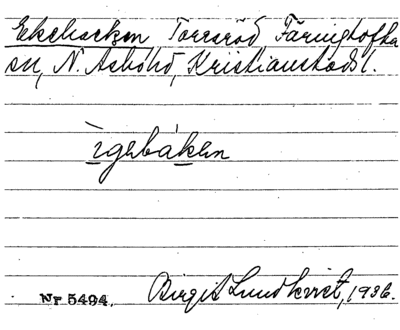 Ekebacken Torraröd Färingtofta
sn, N. Åsbohd, Kristianstads l.
ìgebáken
Nr 5494. Birgit Lundkvist, 1936.